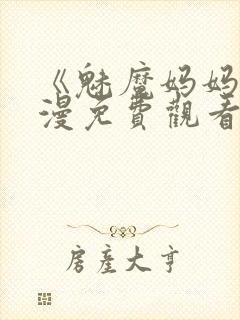 《魅魔妈妈
漫免費觀看
房產大亨